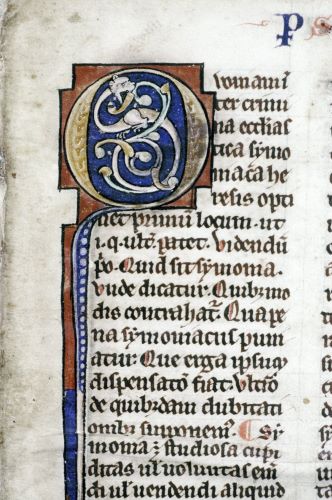 P S
Quoniam ī
ter crimi
na ecclias
tica symo
maca he
resis opti
net primū locum. ut
i. q. ult. patet. Videndū
ē p̄o. Quid sit symonia.
Vnde dicatur. Quib; mo
dis contrahat̄. Qua pe
na symoniacus puni
atur. Que erga ipsuꝫ
dispensatō fiat. Vltīo
de quibꝰdam dubitati
onibꝰ supponem̄. ¶ Sy
monia ē studiosa cupi
ditas uł uoluntas em̄
di uł uendendi aliquid